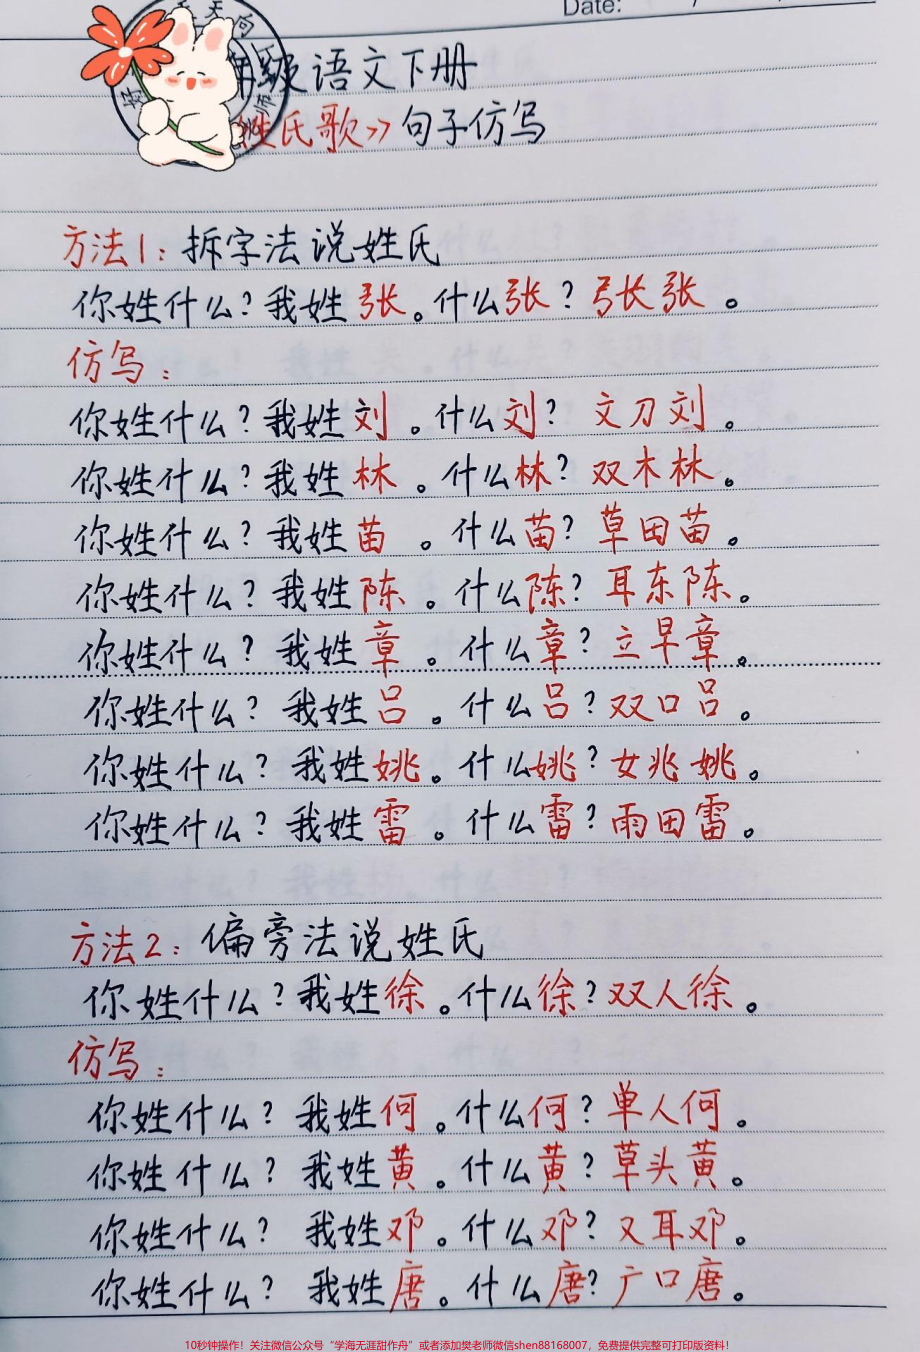 Date:
年级语文下册
姓氏歌》句子仿写
方法1：拆字法说姓氏
你姓什么？我姓张。什么张？弓长张。
仿写：
你姓什么？我姓刘。什么刘？文刀刘。
你姓什么？我姓林。什么林？双木林。
你姓什么？我姓苗。什么苗？草田苗。
你姓什么？我姓陈。什么陈？耳东陈。
你姓什么？我姓章。什么章？立早章。
你姓什么？我姓吕。什么吕？双口吕。
你姓什么？我姓姚。什么姚？女兆姚。
你姓什么？我姓雷。什么雷？雨田雷。
方法2：偏旁法说姓氏
你姓什么？我姓徐。什么徐？双人徐。
仿写：
你姓什么？我姓何。什么何？单人何。
你姓什么？我姓黄。什么黄？草头黄。
你姓什么？我姓邓。什么邓？又耳邓。
你姓什么？我姓唐。什么唐？广口唐。
10秒钟操作！关注微信公众号“学海无涯甜作舟”或者添加樊老师微信shen88168007，免费提供完整可打印版资料！